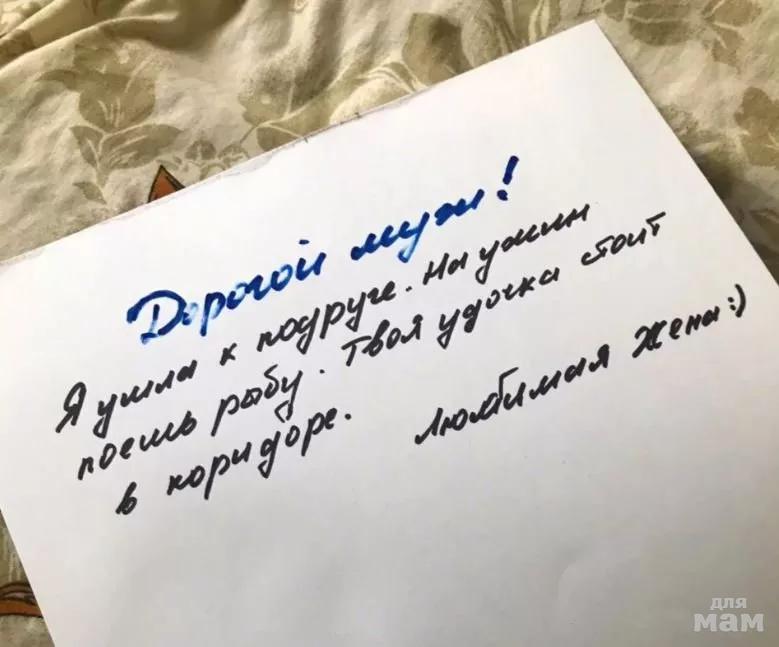 Дорогой муж!
Я ушла к подруге. На ужин
поешь рыбу. Твоя удочка стоит
в коридоре. Любимая жена:)
для
мам